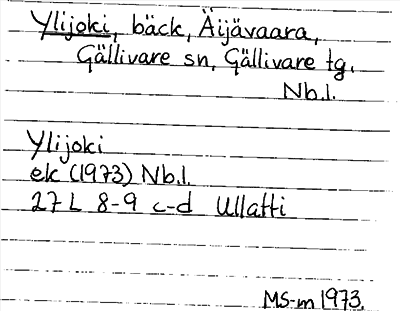 Ylijoki, bäck, Äijävaara,
Gällivare sn, Gällivare tg.
Nb.l.
Ylijoki
ek (1973) Nb.l.
27 L 8-9 c-d Ullatti
MS-m 1973.